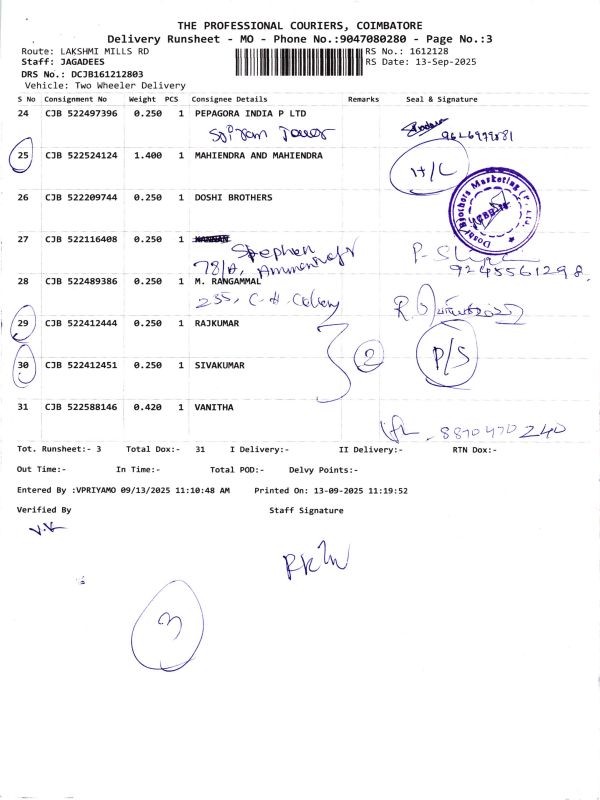 THE PROFESSIONAL COURIERS, COIMBATORE
Delivery Runsheet - MO - Phone No.:9047080280 - Page No.:3
Route: LAKSHMI MILLS RD RS No.: 1612128
Staff: JAGADEES RS Date: 13-Sep-2025
DRS No.: DCJB161212803
Vehicle: Two Wheeler Delivery
S No Consignment No Weight PCS Consignee Details Remarks Seal & Signature
24 CJB 522497396 0.250 1 PEPAGORA INDIA P LTD
Tower
25 CJB 522524124 1.400 1 MAHIENDRA AND MAHIENDRA
H/C
26 CJB 522209744 0.250 1 DOSHI BROTHERS
Doshi Brothers Marketing (P) Ltd.
27 CJB 522116408 0.250 1
Stephen
9245561298.
28 CJB 522489386 0.250 1 M. RANGAMMAL
235, C-H Colony
29 CJB 522412444 0.250 1 RAJKUMAR
2 P/S
30 CJB 522412451 0.250 1 SIVAKUMAR
31 CJB 522588146 0.420 1 VANITHA
8870470240
Tot. Runsheet:- 3 Total Dox:- 31 I Delivery:- II Delivery:- RTN Dox:-
Out Time:- In Time:- Total POD:- Delvy Points:-
Entered By :VPRIYAMO 09/13/2025 11:10:48 AM Printed On: 13-09-2025 11:19:52
Verified By Staff Signature
V.K
3